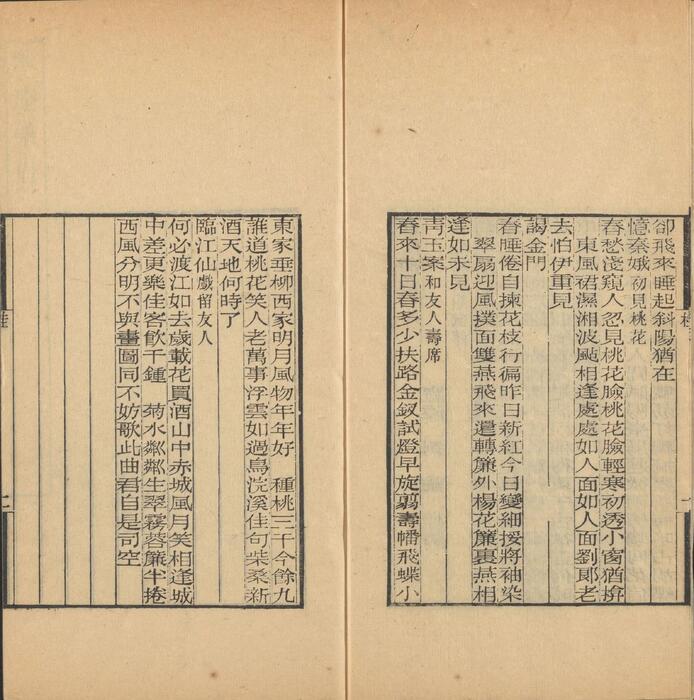 卻飛來睡起斜陽猶在
憶秦娥 初見桃花
春愁淺窺人忽見桃花臉桃花臉輕寒初透小窗猶揜
東風裙濕湘波颭相逢處處如人面如人面劉郎老
去怕伊重見
謁金門
春睡倦自揀花枝行徧昨日新紅今日變細挼將袖染
翠扇迎風撲面雙燕飛來遣轉簾外楊花簾裏燕相
逢如未見
青玉案 和友人壽席
春來十日春多少扶路金釵試燈早旋翦壽幡飛蝶小
東家垂柳西家明月風物年年好 種桃三千今餘九
誰道桃花笑人老萬事浮雲如過鳥浣溪佳句柴桑新
酒天地何時了
臨江仙 戲留友人
何必渡江如去歲載花買酒山中赤城風月笑相逢城
中差更樂佳客飲千鍾 菊水粼粼生翠霧蓉簾半捲
西風分明不與畫圖同不妨歌此曲君自是司空